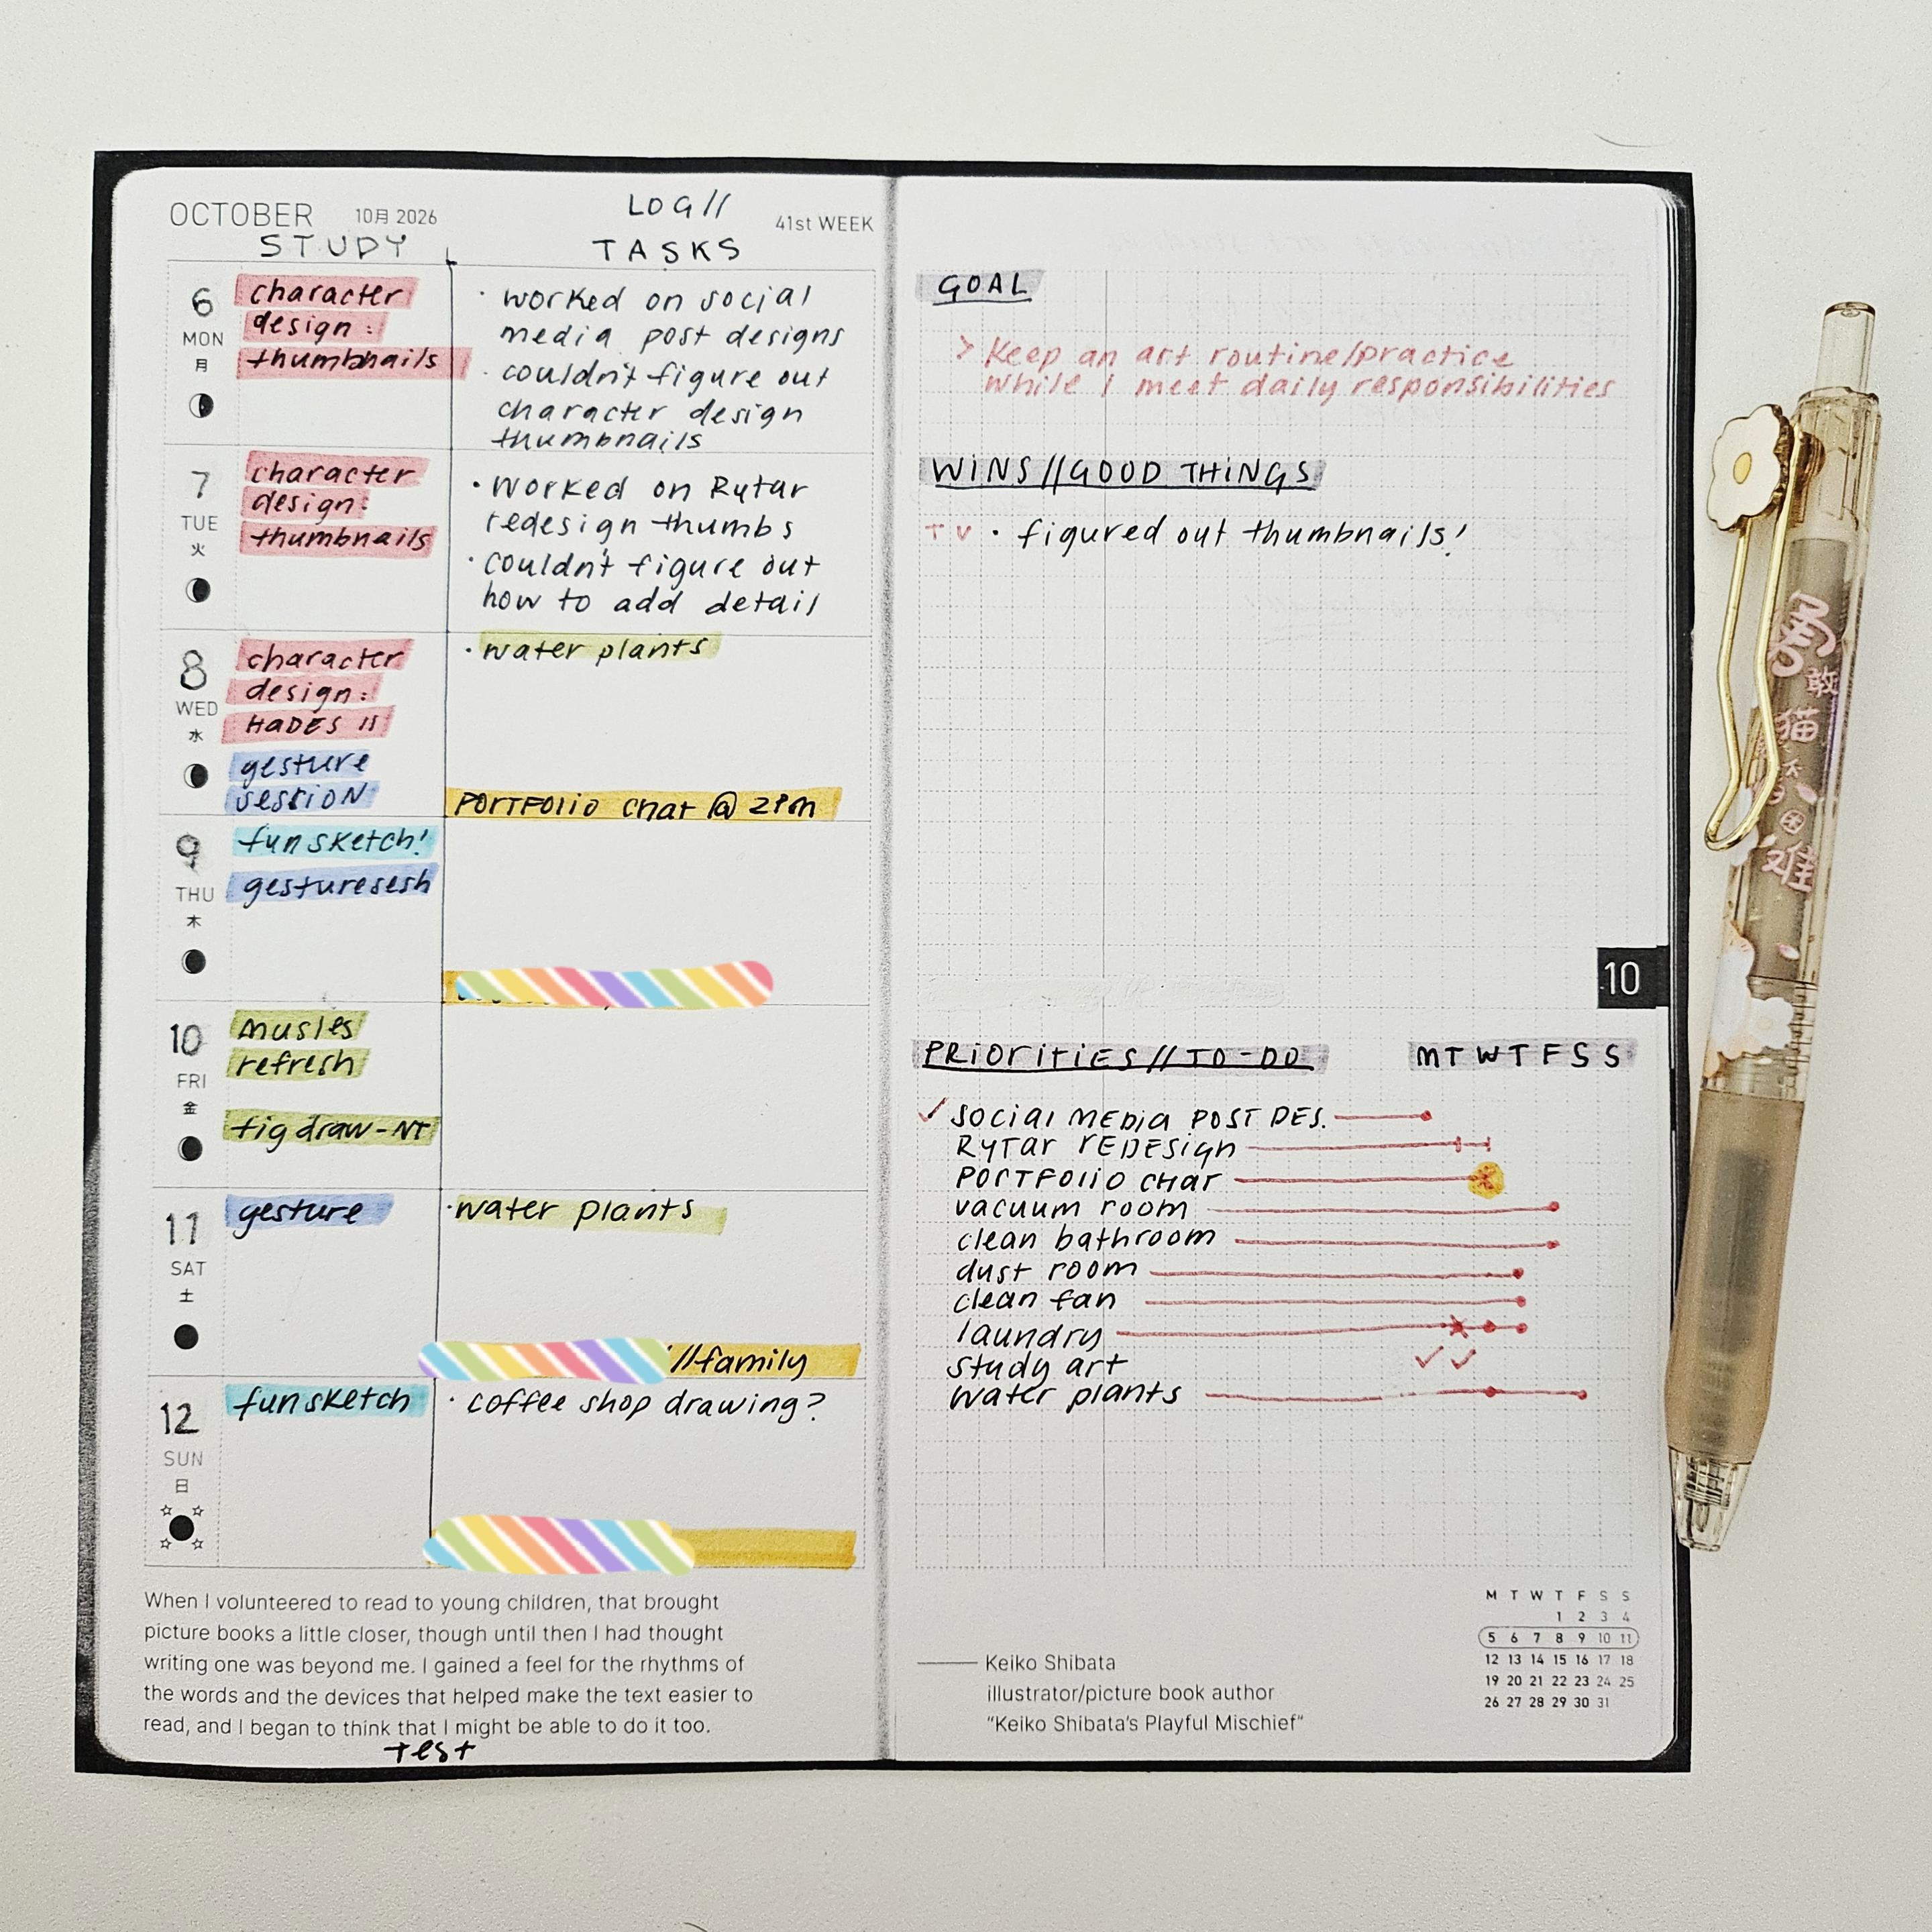 OCTOBER 10月 2026
STUDY
LOG//
TASKS
41st WEEK
6
MON
月
character
design:
thumbnails
· worked on social
media post designs
· couldn't figure out
character design
thumbnails
7
TUE
火
character
design:
thumbnails
· Worked on Rytar
redesign thumbs
· couldn't figure out
how to add detail
8
WED
水
character
design:
HADES II
gesture
session
· water plants
PORTFOLIO chat @ 2PM
9
THU
木
fun sketch!
gesture sesh
10
FRI
金
musles
refresh
fig draw - NT
11
SAT
土
gesture
· water plants
//family
12
SUN
日
fun sketch
· coffee shop drawing?
When I volunteered to read to young children, that brought
picture books a little closer, though until then I had thought
writing one was beyond me. I gained a feel for the rhythms of
the words and the devices that helped make the text easier to
read, and I began to think that I might be able to do it too.
test
GOAL
> Keep an art routine/practice
while i meet daily responsibilities
WINS//GOOD THINGS
TU · figured out thumbnails!
10
PRIORITIES//TO-DO M T W T F S S
✓ SOCIAL MEDIA POST DES.
RYTAR REDESIGN
PORTFOLIO CHAT
vacuum room
clean bathroom
dust room
clean fan
laundry
study art ✓ ✓
water plants
Keiko Shibata
illustrator/picture book author
"Keiko Shibata's Playful Mischief"
M T W T F S S
1 2 3 4
5 6 7 8 9 10 11
12 13 14 15 16 17 18
19 20 21 22 23 24 25
26 27 28 29 30 31
勇
敢
猫
不
困
难